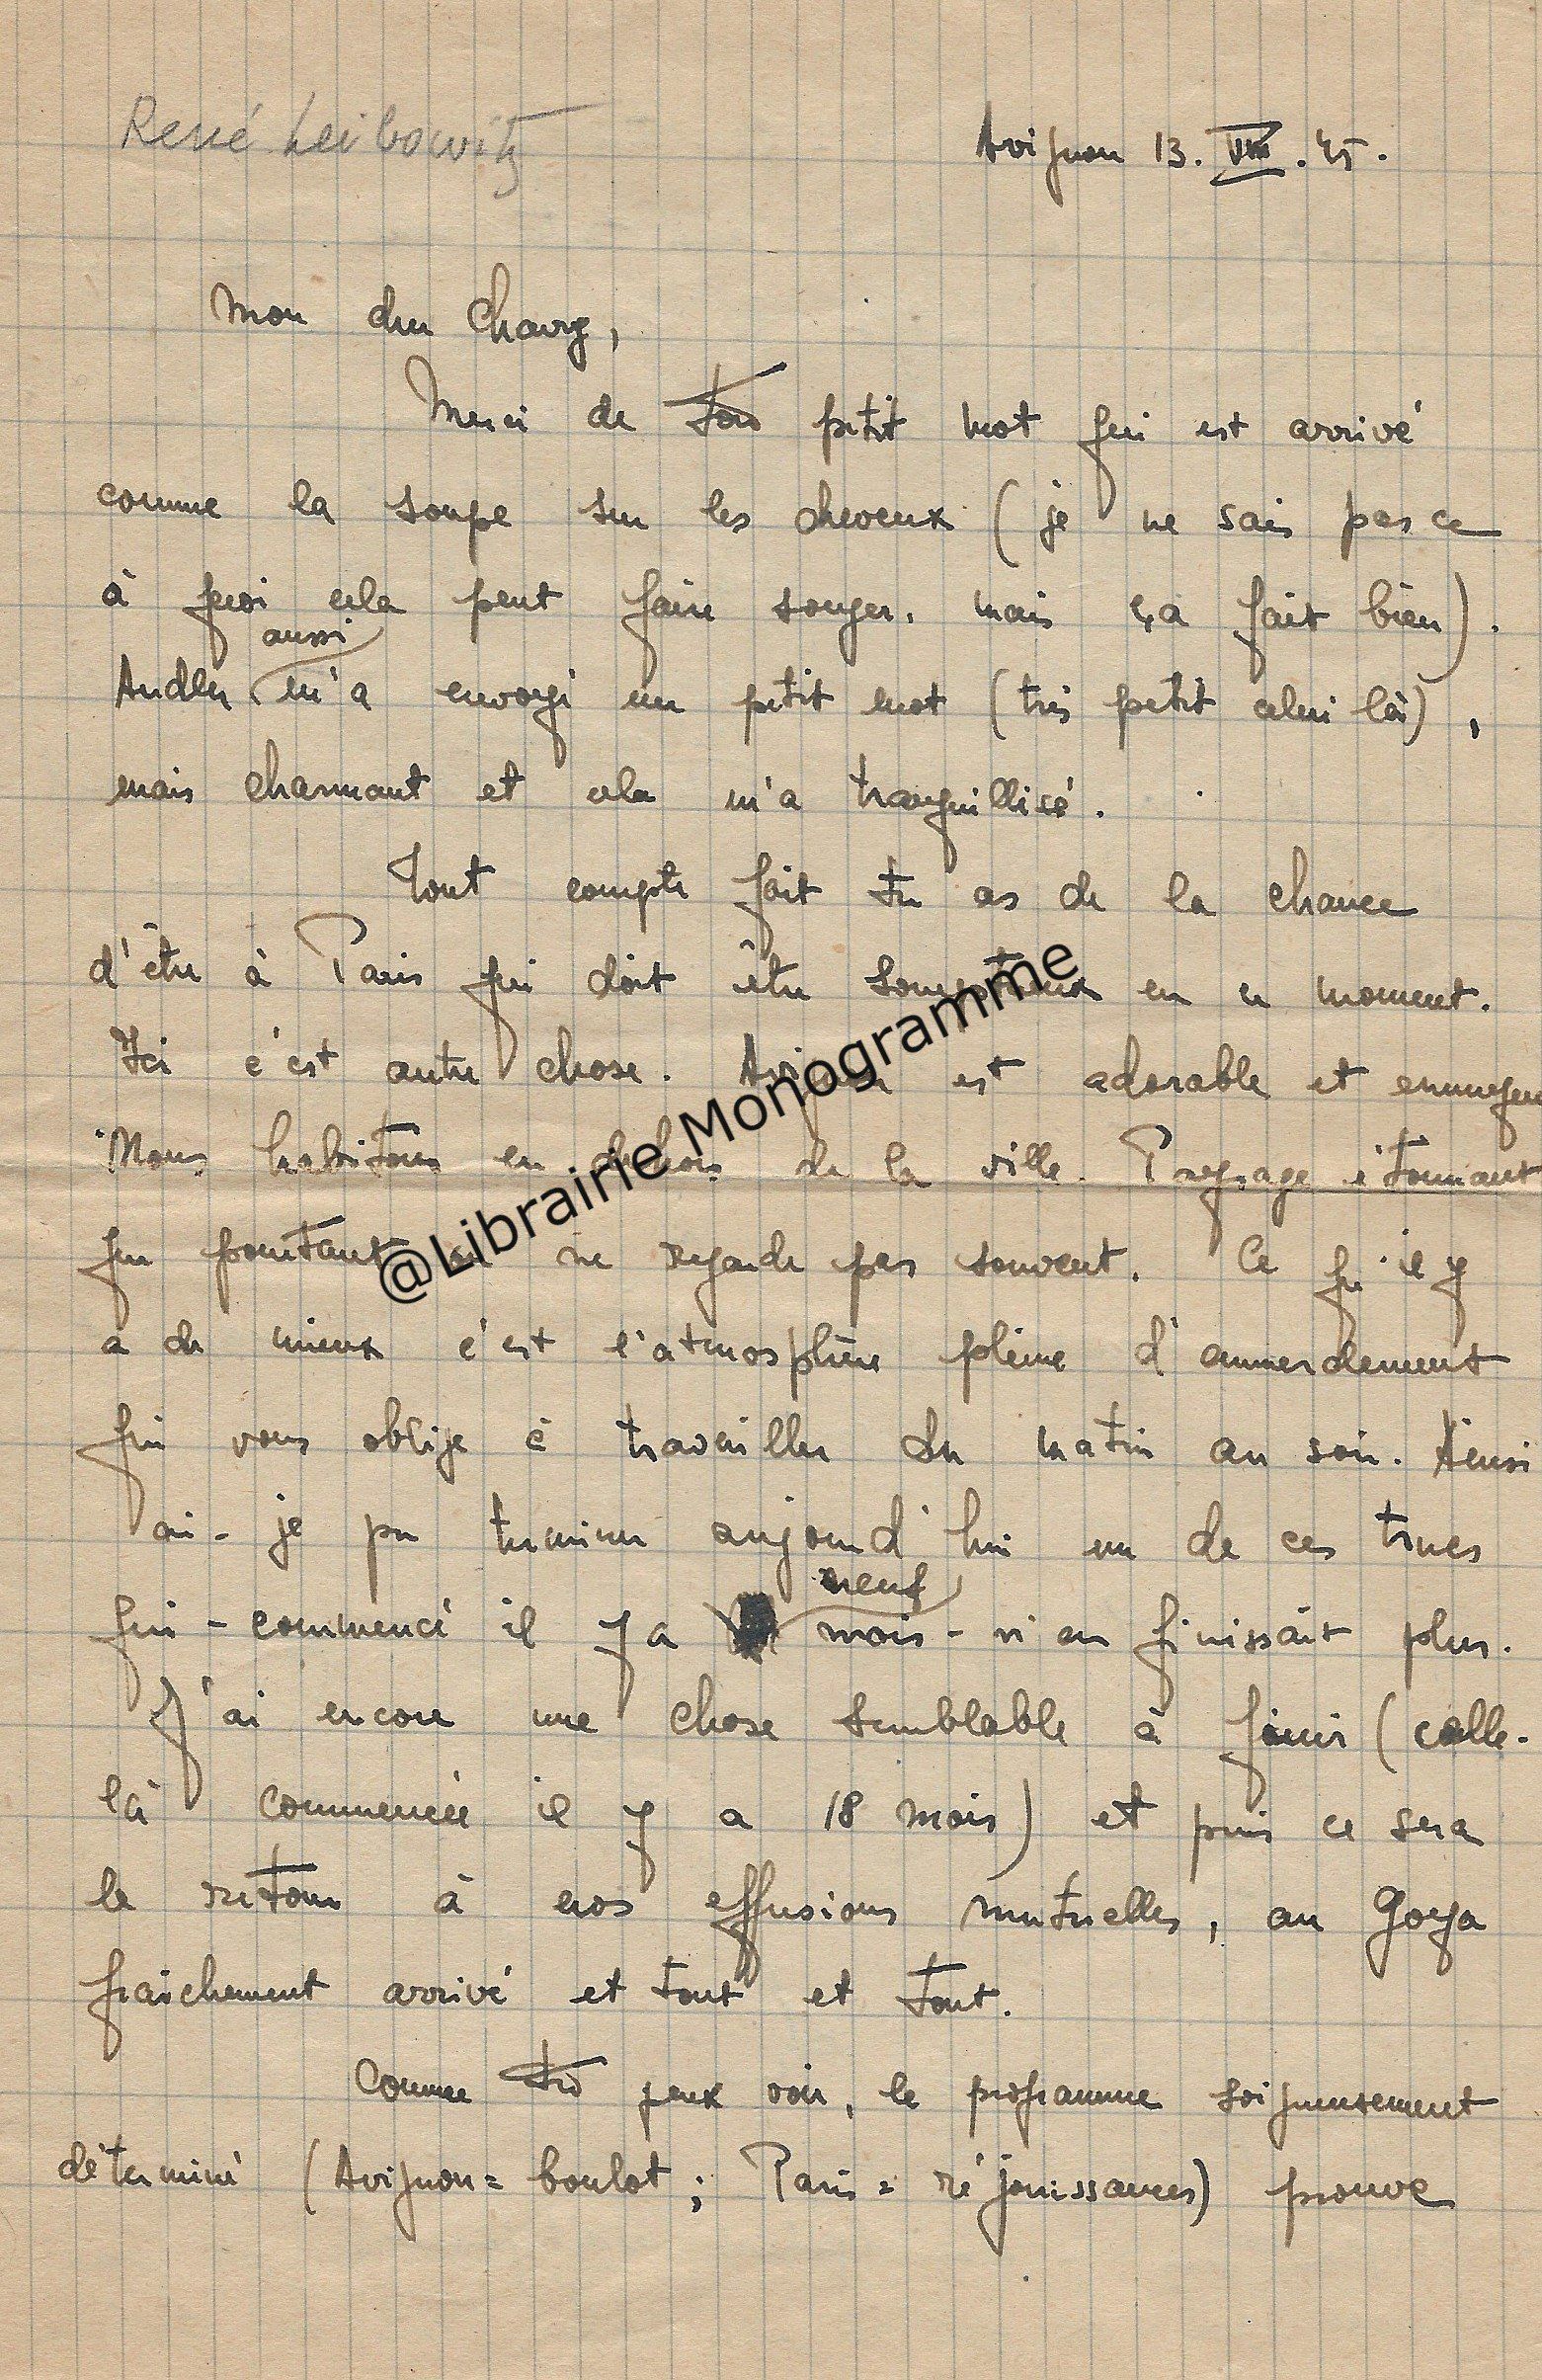 René Leibowitz
Avignon 13. VIII. 45.
Mon cher Chavy,
Merci de ton petit mot qui est arrivé
comme la soupe sur les cheveux (je ne sais pas ce
à quoi cela peut faire songer, mais ça fait bien).
aussi
Andler m'a envoyé un petit mot (très petit celui là),
mais charmant et cela m'a tranquillisé.
Tout compte fait tu as de la chance
d'être à Paris qui doit être somptueux en ce moment.
Ici c'est autre chose. Avignon est adorable et ennuyeu
Nous habitons en dehors de la ville. Paysage étonnant
que pourtant on ne regarde pas souvent. Ce qu'il y
a de mieux c'est l'atmosphère pleine d'emmerdement
qui vous oblige à travailler du matin au soir. Ainsi
ai-je pu terminer aujourd'hui un de ces trucs
neuf
qui - commencé il y a mois - n'en finissait plus.
J'ai encore une chose semblable à finir (celle-
là commencée il y a 18 mois) et puis ce sera
le retour à nos effusions mutuelles, au Goya
fraichement arrivé et tout et tout.
Comme tu peux voir, le programme soigneusement
déterminé (Avignon = boulot ; Paris = réjouissances) prouve
@Librairie Monogramme